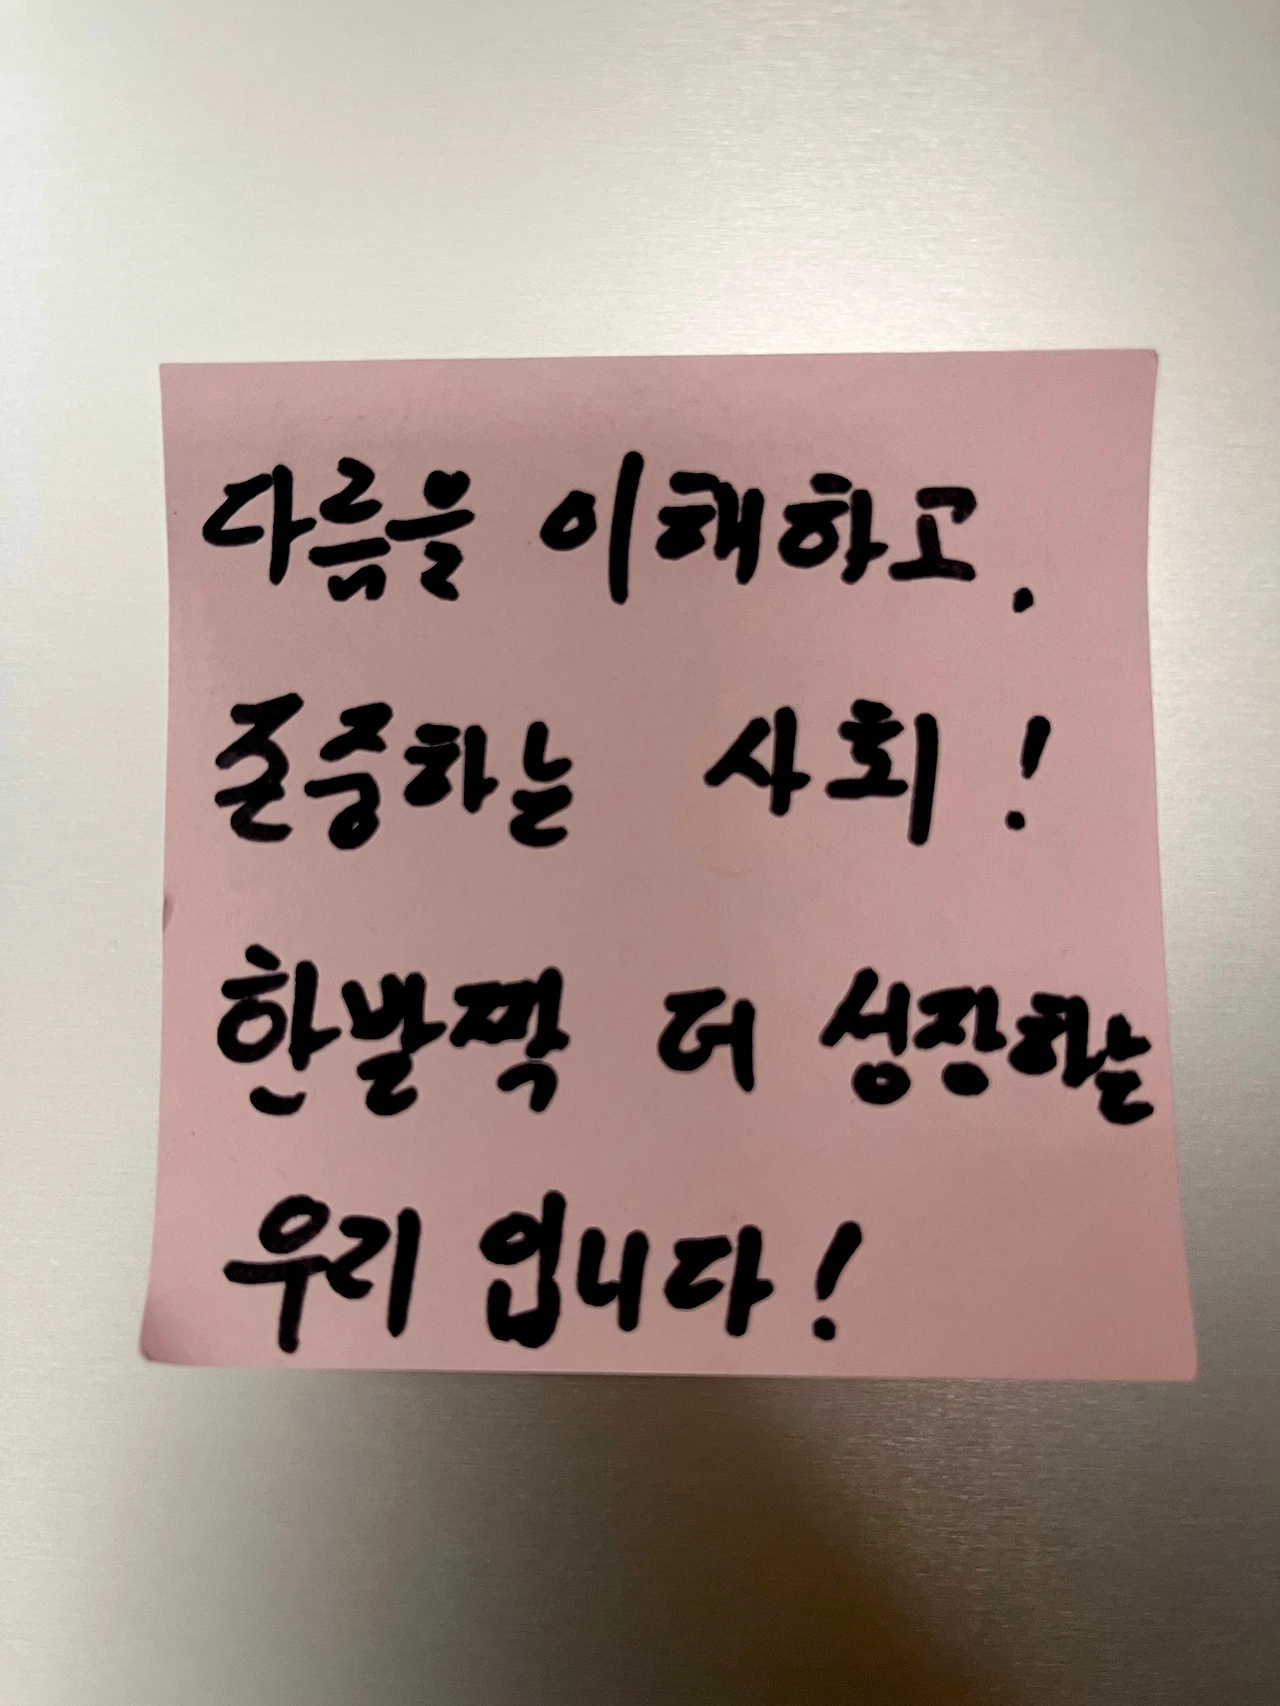 다름을 이해하고.
존중하는 사회!
한발짝 더 성장하는
우리 입니다!